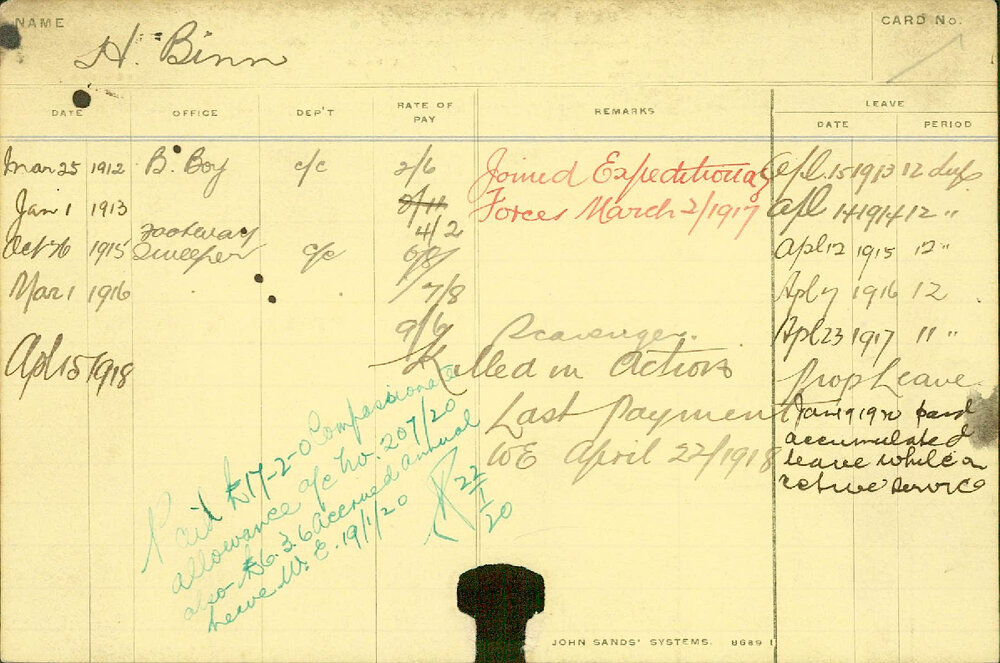 NAME
CARD No.
H. Binn
DATE OFFICE DEP'T RATE OF PAY REMARKS LEAVE
DATE PERIOD
Mar 25 1912 B. Boy c/c 2/6 Joined Expeditionary Apl 15 1913 12 days
Jan 1 1913 3/11 Forces March 2/1917 Apl 14 1914 12 "
4/2
Footway
Oct 26 1915 Sweeper c/c 6/8 Apl 12 1915 12 "
Mar 1 1916 7/8 Apl 7 1916 12
9/6 Scavenger. Apl 23 1917 11 "
Apl 15 1918 Killed in Action
Prop Leave
Last Payment
WE April 22/1918
Jan 19 1920 paid
accumulated
leave while on
active service
Paid £17-2-0 Compassionate
allowance a/c No. 207/20
also £6.3.6 accrued annual
leave W.E. 19/1/20
22/1/20
JOHN SANDS' SYSTEMS. 8689